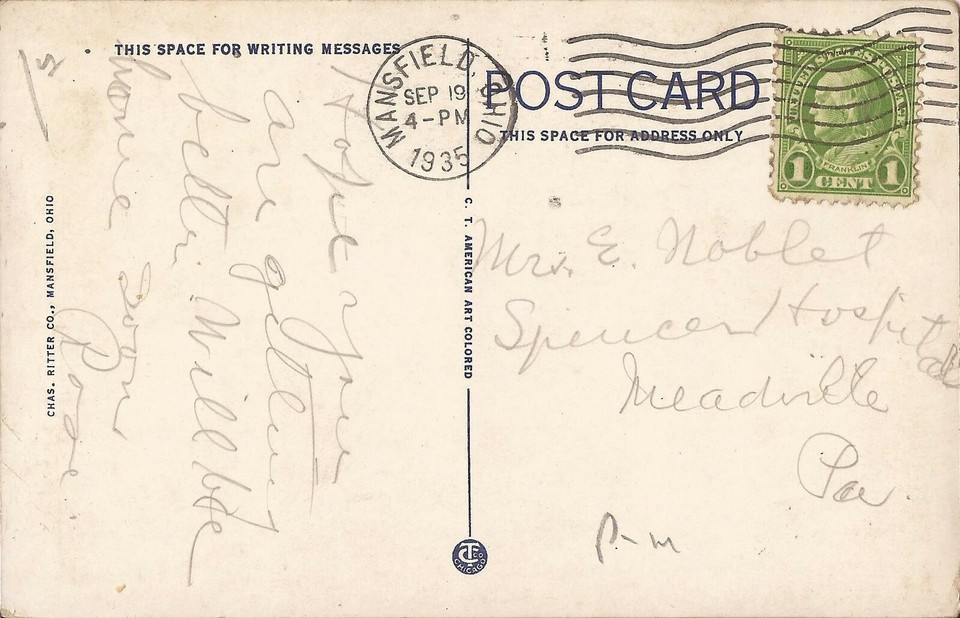 THIS SPACE FOR WRITING MESSAGES
Hope you
are getting
better. Will be
home soon
Rose
CHAS. RITTER CO., MANSFIELD, OHIO
C. T. AMERICAN ART COLORED
MANSFIELD, OHIO
SEP 19
4-PM
1935
POST CARD
THIS SPACE FOR ADDRESS ONLY
UNITED STATES POSTAGE
FRANKLIN
1 CENT 1
Mrs. E. Noblet
Spencer Hospital
Meadville
Pa.
P-m
CT CO
CHICAGO